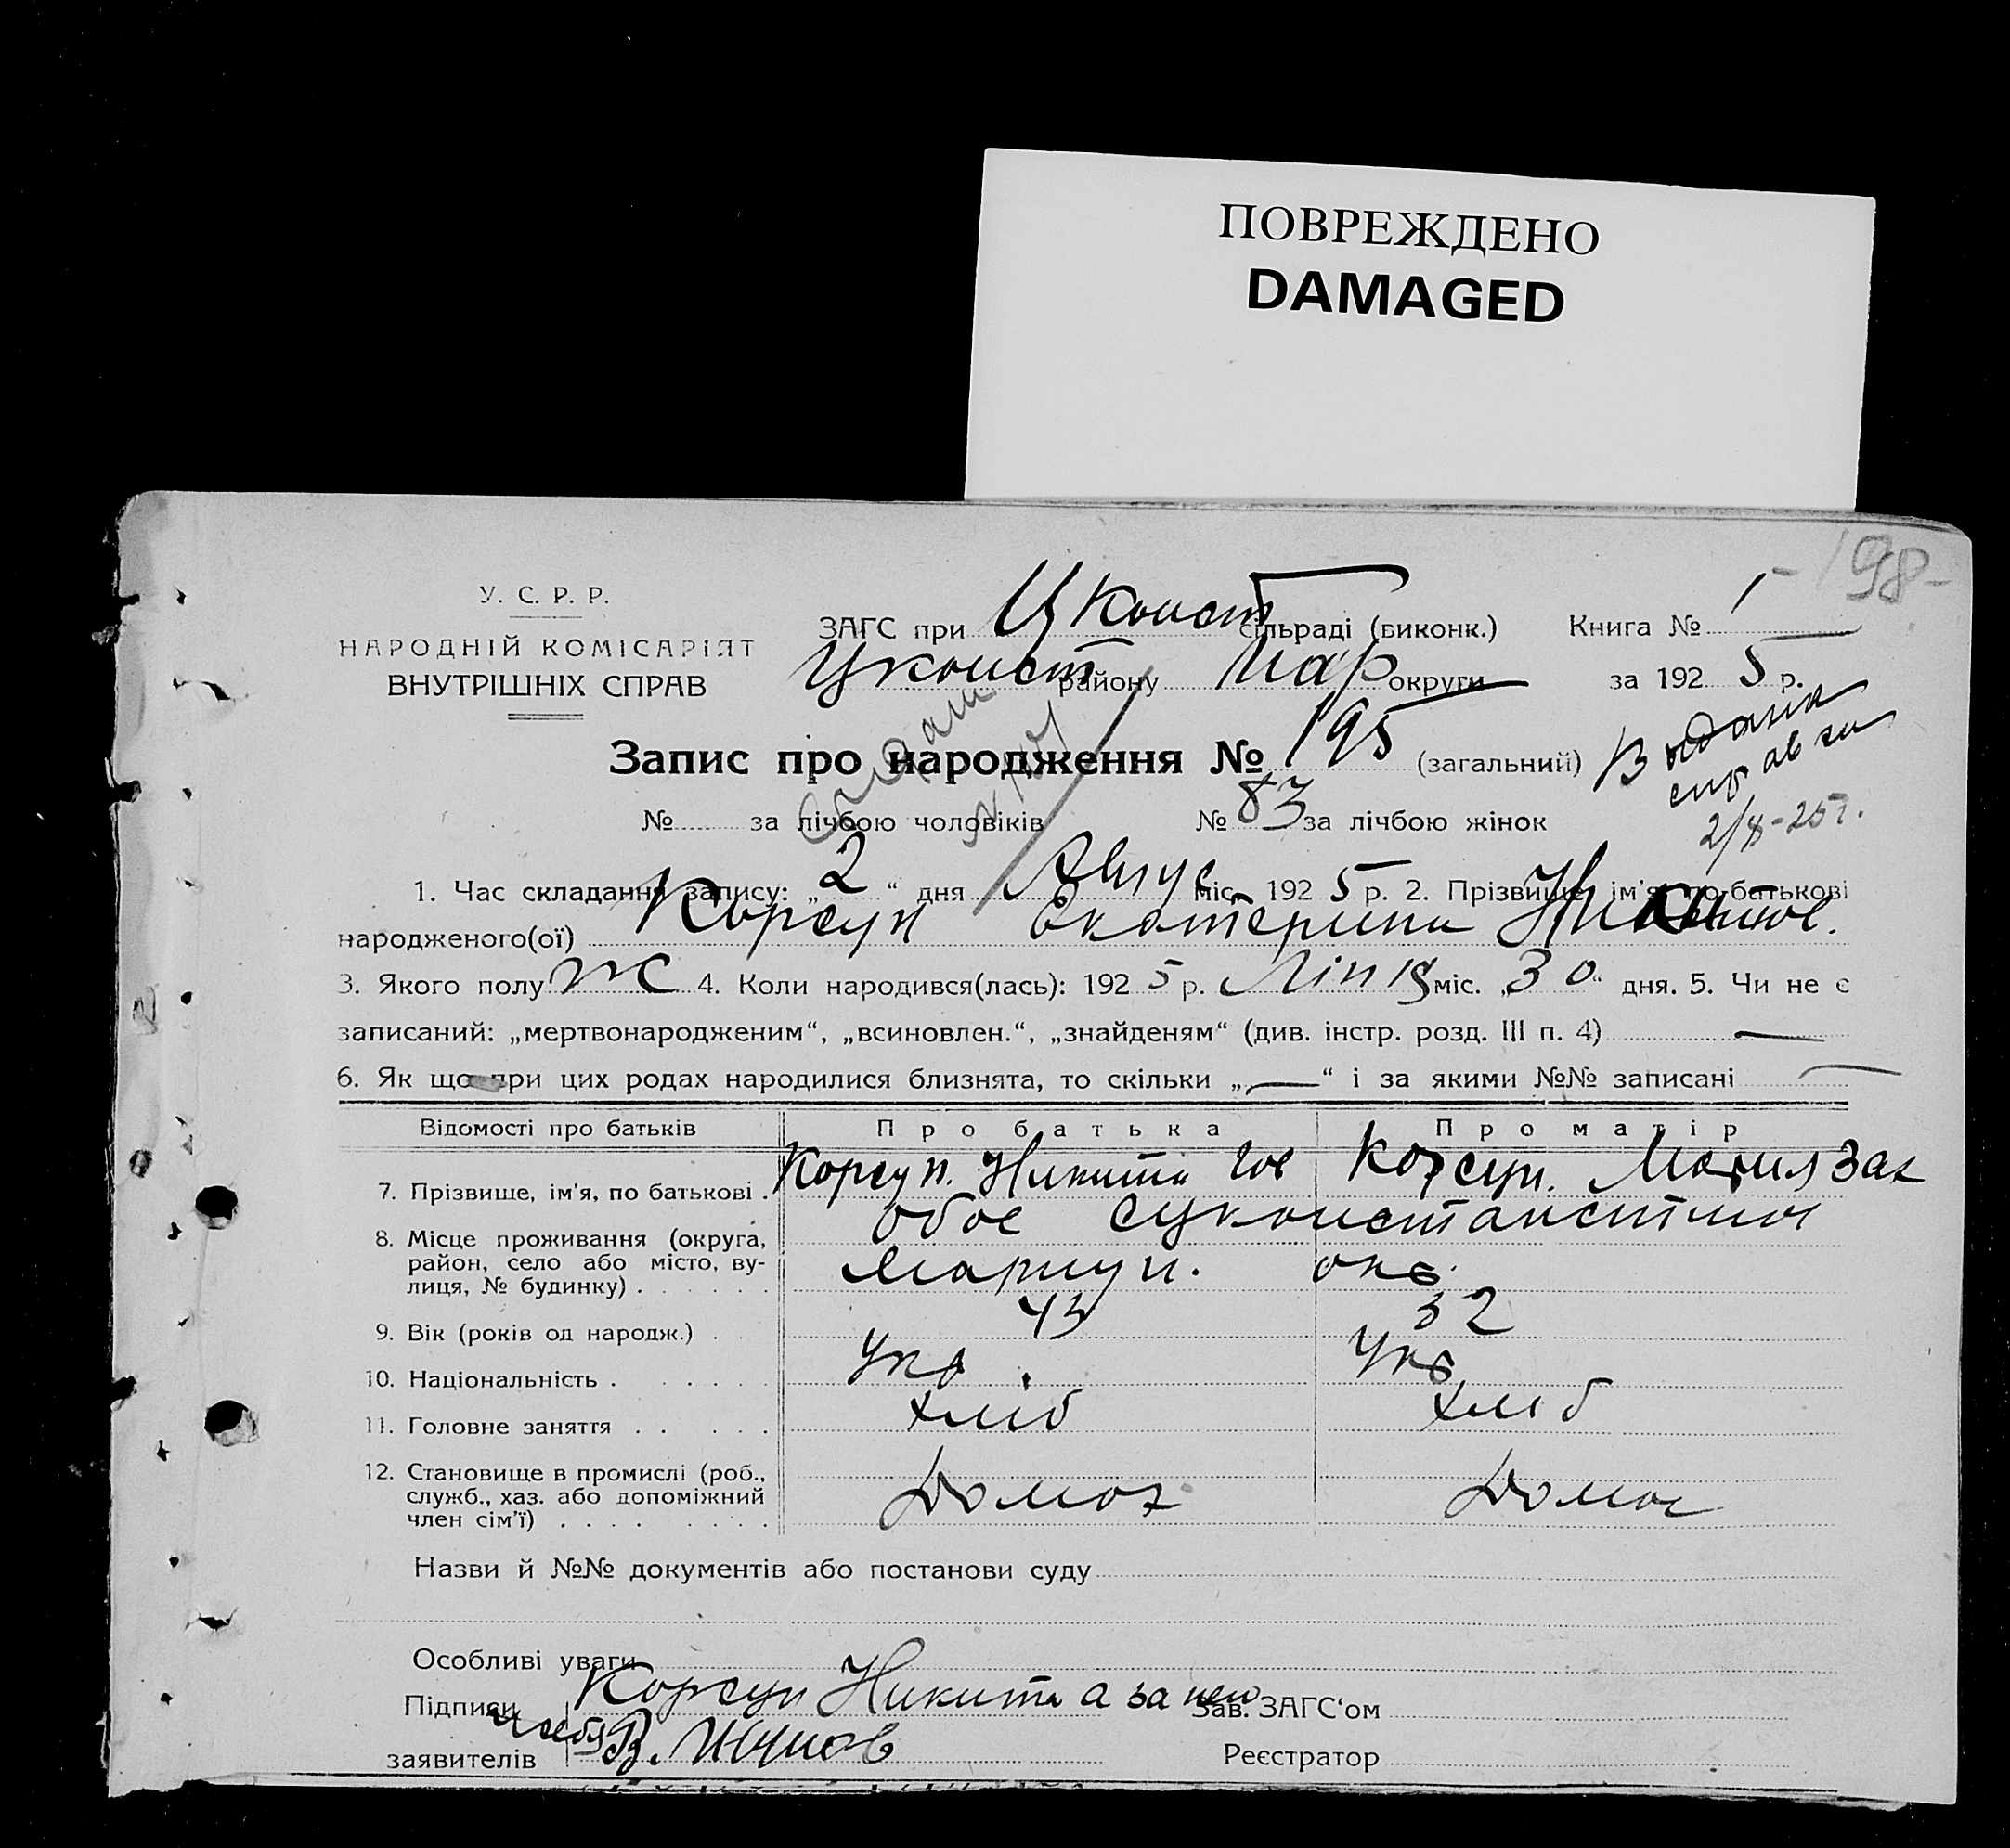 ПОВРЕЖДЕНО
DAMAGED
198-
У. С. Р. Р.
НАРОДНІЙ КОМІСАРІЯТ
ВНУТРІШНІХ СПРАВ
ЗАГС при Цконст сільраді (виконк.) Книга № 1
Цконст району Мар округи за 192 5 р.
Запис про народження № 195 (загальний)
Видана
справка
2/8-25 г.
№ за лічбою чоловіків № 83 за лічбою жінок
1. Час складання запису: „ 2 “ дня Авгус міс. 192 5 р. 2. Прізвище, ім’я, по батькові
народженого(ої) Корсун Екатерина
3. Якого полу Ж 4. Коли народився(лась): 192 5 р. Липня міс. „ 30 “ дня. 5. Чи не є
записаний: „мертвонародженим“, „всиновлен.“, „знайденям“ (див. інстр. розд. III п. 4) —
6. Як що при цих родах народилися близнята, то скільки „ — “ і за якими №№ записані —
Відомості про батьків Про батька Про матір
7. Прізвище, ім’я, по батькові . Корсун. Никита Корсун. Мария Зах
8. Місце проживання (округа, район, село або місто, вулиця, № будинку) . обое
Мариуп. окр.
9. Вік (років од народж.) . 43 32
10. Національність . Укр. Укр
11. Головне заняття . . хліб хліб
12. Становище в промислі (роб.,
служб., хаз. або допоміжний
член сім’ї) . . . . Домог Домог
Назви й №№ документів або постанови суду
Особливі уваги
Підписи Корсун Никита а за него Зав. ЗАГС‘ом
заявителів В. Реєстратор